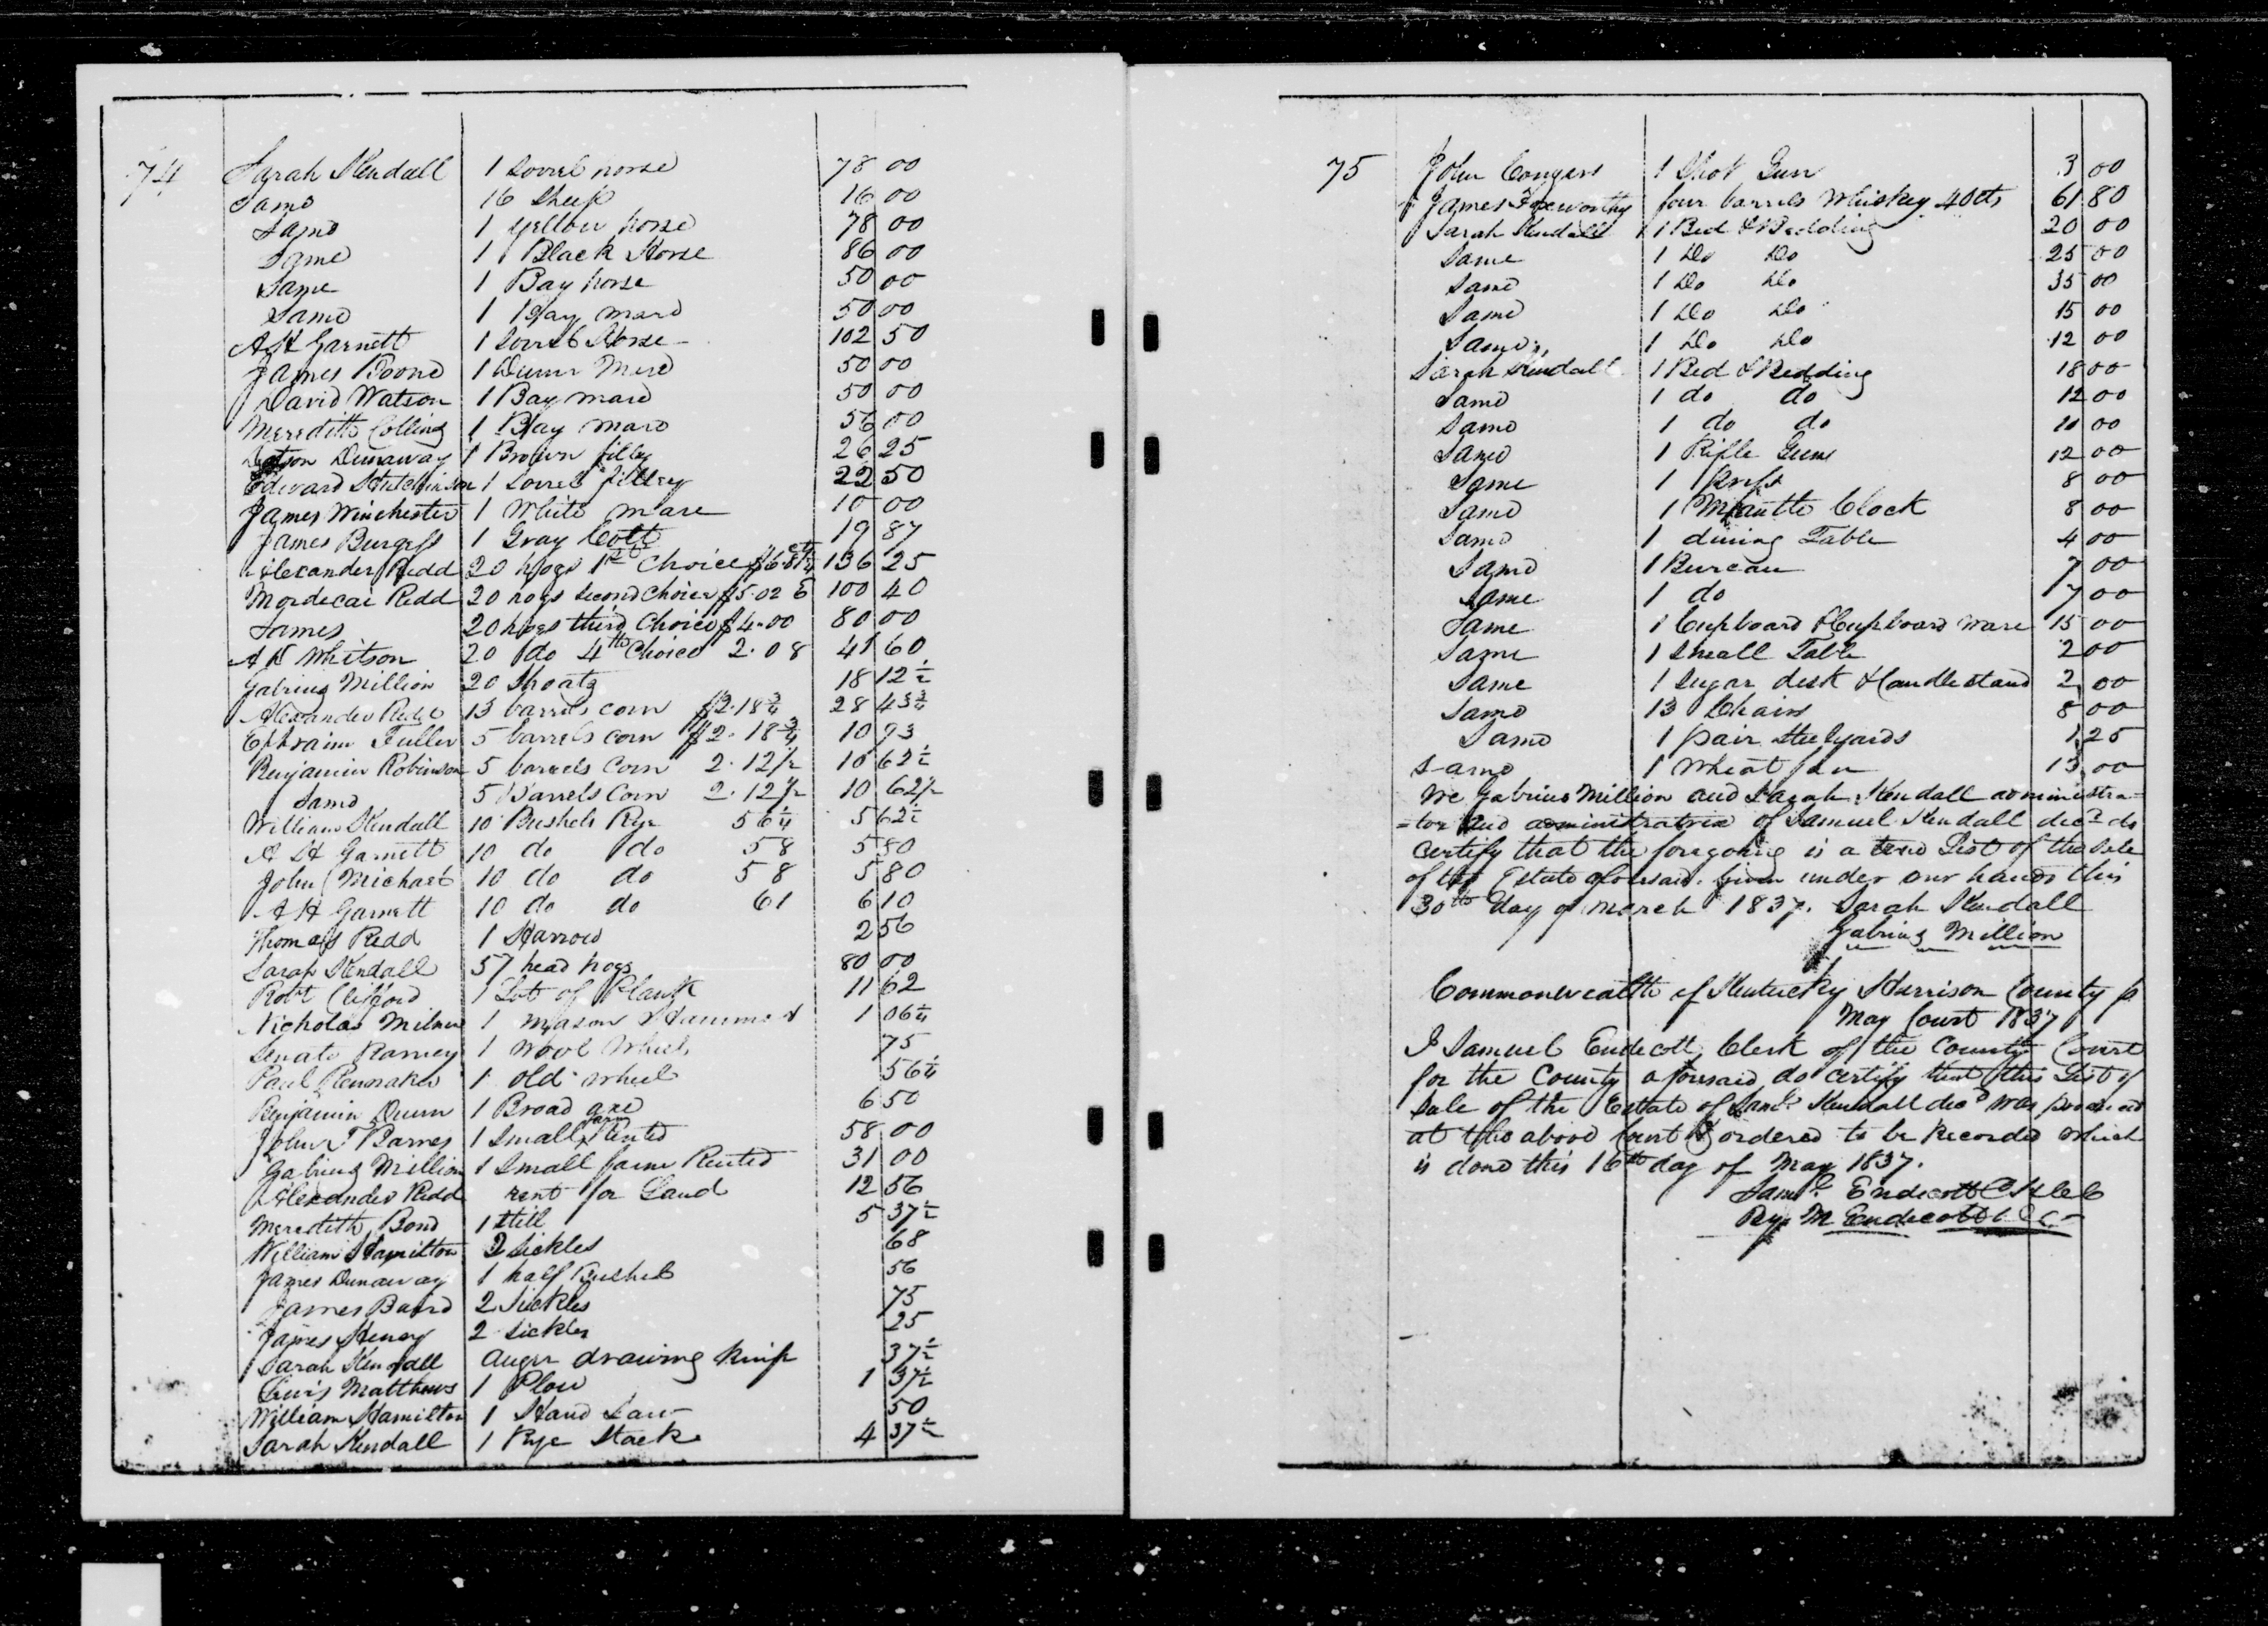 74
Sarah Kendall 1 Sorrel horse 78 00
Same 16 Sheep 16 00
Same 1 yellow horse 78 00
Same 1 Black Horse 86 00
Same 1 Bay horse 50 00
Same 1 Bay mare 50 00
A H Garnett 1 Sorrel Horse 102 50
James Boone 1 Dunn Mare 50 00
David Watson 1 Bay mare 50 00
Meredith Colling 1 Bay mare 56 00
Dunaway 1 Brown filley 26 25
Edward Hutchinson 1 Sorrel filley 22 50
James Winchester 1 White mare 10 00
James Burgess 1 Gray Colt 19 87
Alexander Redd 20 hogs 1st Choice $6.81¼ cts 136 25
Mordecai Redd 20 hogs second choice $5.02 100 40
James 20 hogs third Choice $4.00 80 00
A Whitson 20 do 4th Choice 2.08 41 60
Gabriug Million 20 Shoatg 18 12½
Alexander Redd 13 barrels corn $2.18¾ 28 43¾
Ephraim Fuller 5 barrels corn $2.18¾ 10 93
Benjamin Robinson 5 barrels Corn 2.12½ 10 62½
Same 5 Barrels Corn 2.12½ 10 62½
William Kendall 10 Bushels Rye 56¼ 5 62½
A H Garnett 10 do do 58 5 80
John Michael 10 do do 58 5 80
A H Garnett 10 do do 61 6 10
Thomas Redd 1 Harrow 2 56
Sarah Kendall 57 head hogs 80 00
Robt Clifford 1 Lot of Plank 11 62
Nicholas Milner 1 Mason Hammer 1 06¼
Senate Ramey 1 Wool Wheel 75
Paul Rennaker 1 old wheel 56¼
Benjamin Dunn 1 Broad axe 6 50
John T Barnes 1 Small farm Rented 58 00
Gabriug Million 1 Small farm Rented 31 00
Alexander Redd rent for Land 12 56
Meredith Bond 1 Still 5 37½
William Hamilton 2 Sickles 68
James Dunaway 1 half Bushel 56
James Baird 2 Sickles 75
James Henry 2 Sickles 25
Sarah Kendall Auger drawing knife 37½
Lewis Matthews 1 Plow 1 37½
William Hamilton 1 Hand Saw 50
Sarah Kendall 1 Rye Stack 4 37½
75
John Congers 1 Shot Gun 3 00
James Foxworthy four barrels Whiskey 40cts 61 80
Sarah Kendall 1 Bed & Bedding 20 00
Same 1 Do Do 25 00
Same 1 Do Do 35 00
Same 1 Do Do 15 00
Same 1 Do Do 12 00
Sarah Kendall 1 Bed & Bedding 18 00
Same 1 do do 12 00
Same 1 do do 00
Same 1 Rifle Gun 12 00
Same 1 Press 8 00
Same 1 Mantle Clock 8 00
Same 1 dining Table 4 00
Same 1 Bureau 7 00
Same 1 do 7 00
Same 1 Cupboard & Cupboard ware 15 00
Same 1 Small Table 2 00
Same 1 Sugar desk & Candlestand 2 00
Same 13 Chairs 8 00
Same 1 pair Steelyards 1 25
Same 1 Wheat fan 13 00
We Gabrius Million and Sarah Kendall administra-
-tor and administratrix of Samuel Kendall decd do
certify that the foregoing is a true List of the Sale
of the Estate aforesaid. Given under our hands this
30th day of March 1837. Sarah Kendall
Gabriug Million
Commonwealth of Kentucky Harrison County
May Court 1837
I Samuel Endecott Clerk of the County Court
for the County aforesaid do certify that this List of
Sale of the Estate of Saml Kendall decd was produced
at the above Court & ordered to be Recorded which
is done this 16th day of May 1837.
Saml Endecott
By M Endecott